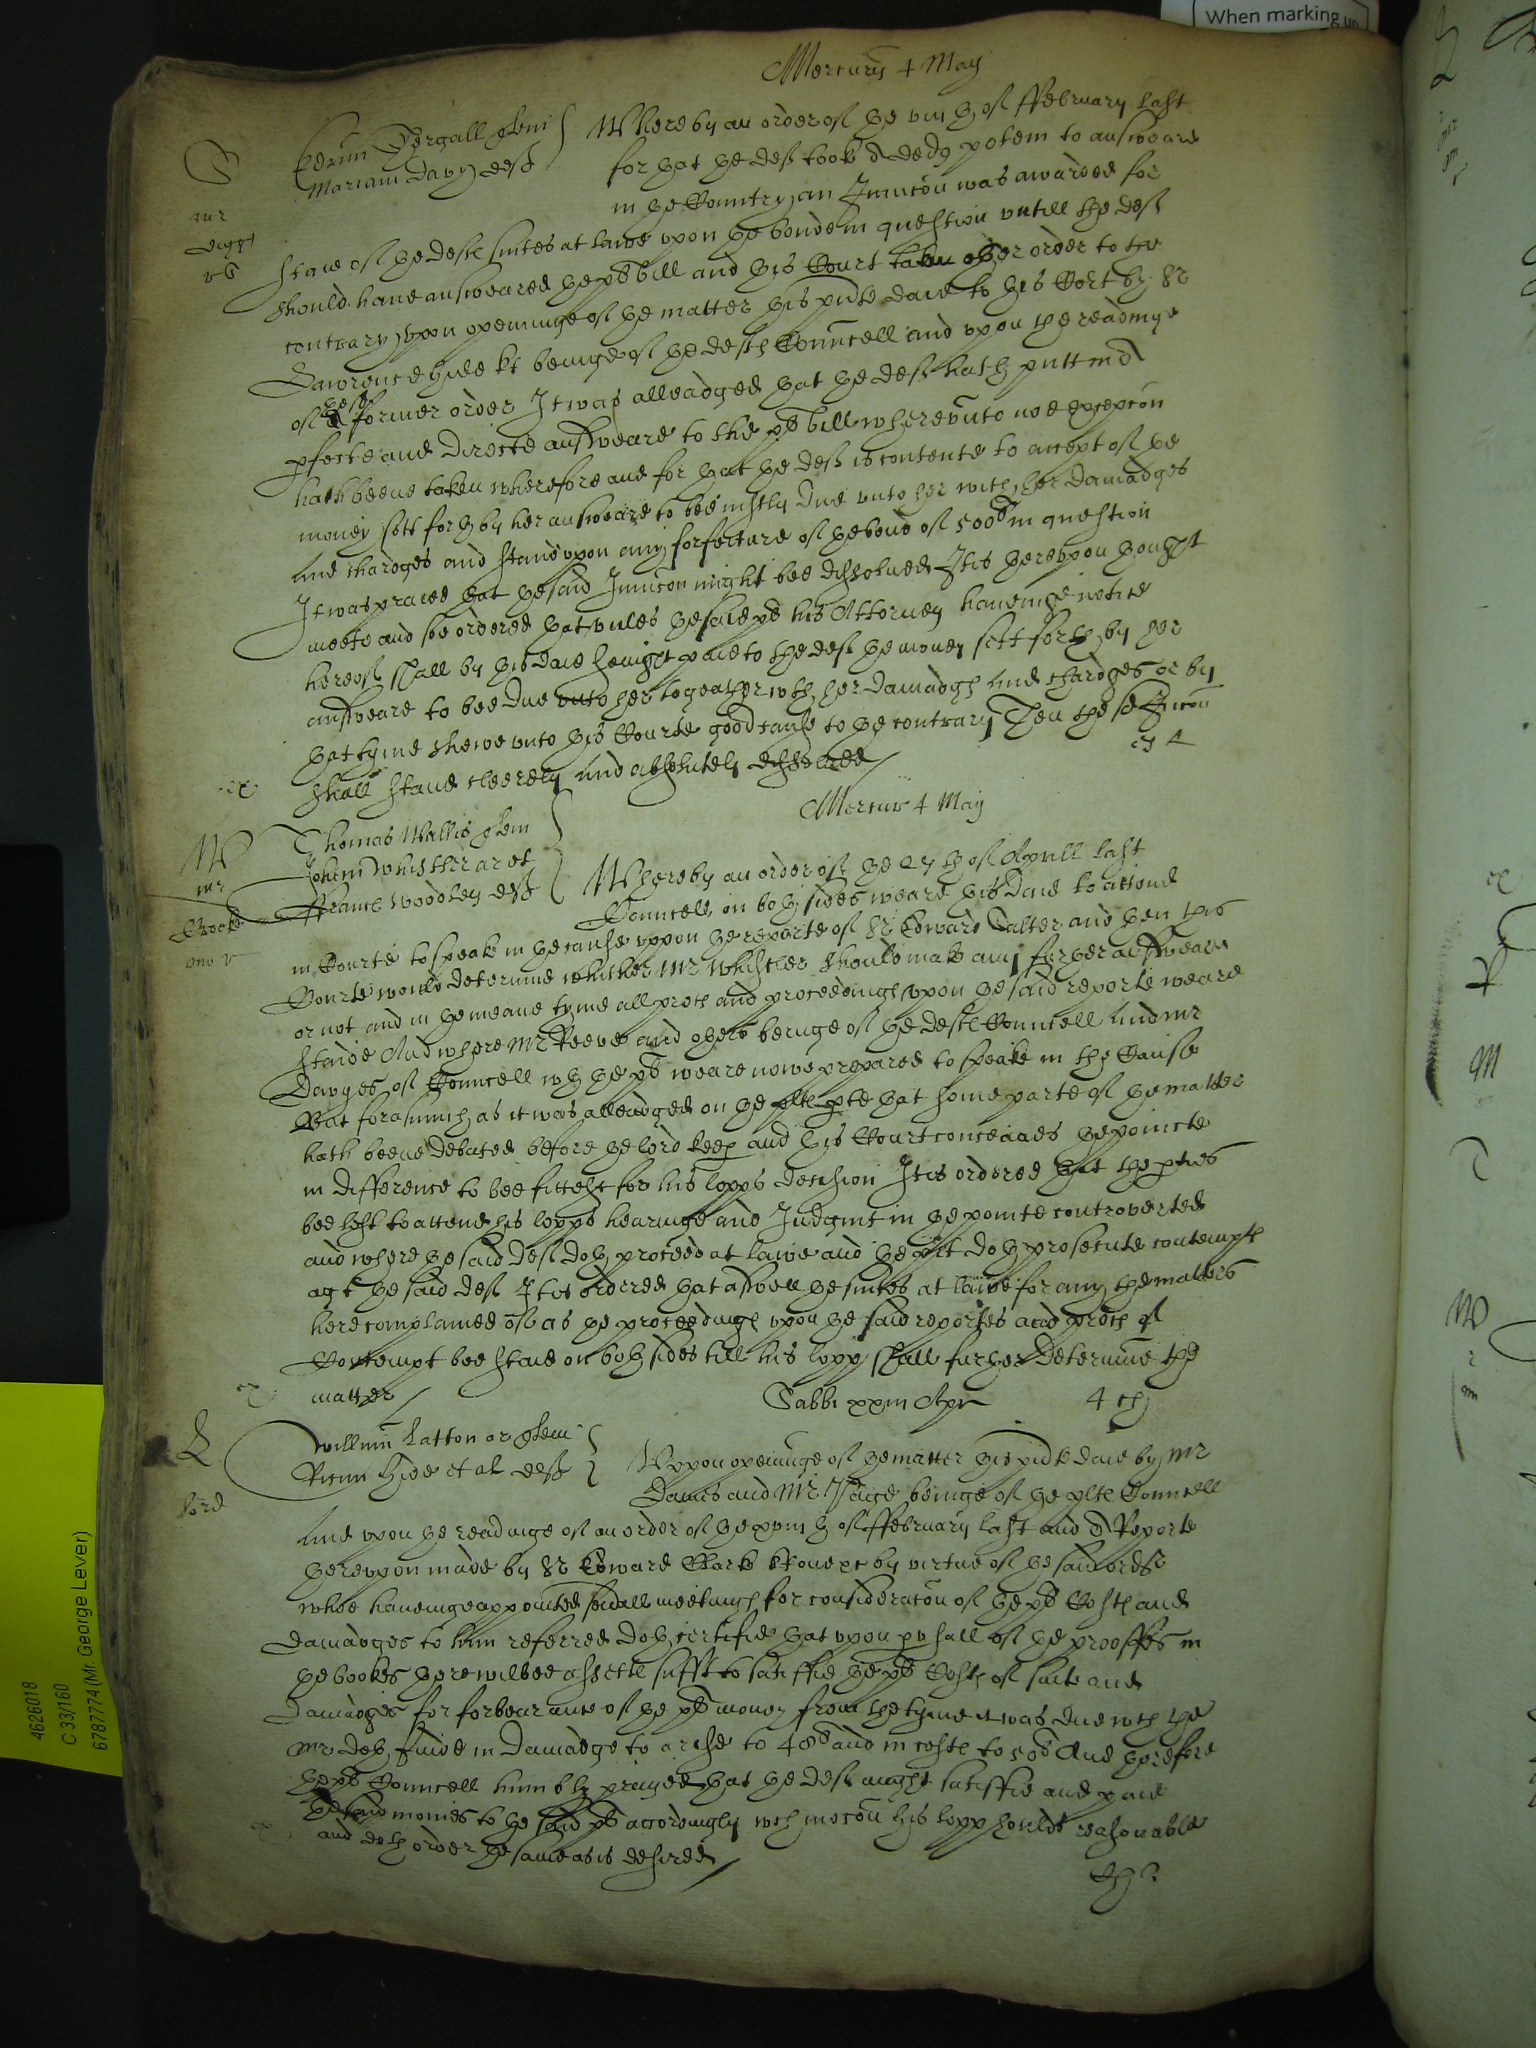 When marking up
Mercurij 4 May
Tergall quer
Mariam Davy deft
Where by an order of the viijth of ffebruary last
for that the deft tooke a dedj potem to answeare
in the Countrey an Iniuncon was awarded for
staie of the deftes suites at lawe vpon the bond in question vntill the deft
should have answeared the pts bill and this Court taken other order to the
contrary, vpon openinge of the matter this pnte daie to this Cort by Sr
Lawrence Hide kt beinge of the deftes Councell and vpon the readinge
of the sd former order It was alleadged that the deft hath putt in a
pfecte and directe answeare to the pts bill wherevnto noe excepcon
hath beene taken wherefore and for that the deft is contente to accept of the
money sett forth by her answeare to bee iustly due vnto her with her damadges
and chardges and stand vpon any forfeiture of the bond of 500li in question
It was praied that the said Iniuncon might bee dissolued It is therevpon thought
meete and soe ordered that vnles the said pt his Attorney haveinge notice
hereof shall by this daie sevnight paie to the deft the money sett forth by her
answeare to bee due vnto her togeather wth her damadges and chardges or by
that tyme shewe vnto this Courte good cause to the contrary Then the sd Iniucon
shall stand cleerely and absolutely dissolved
Mercur 4 May
W
mr
Thomas Wallis quer
Johem Whistler ar et
ffranc Woodley deft
Whereby an order of the 27th of Aprill last
Councell on both sides weare this daie to attend
in Courte to speak in the cause vppon the reporte of Sr Edward Salter and then this
Courte would determine whither Mr Whistler should make any further answeare
or not and in the meane tyme all proces and proceedinges vpon the said reporte weare
staied And where Mr Reeve and others beinge of the deftes Councell and Mr
Davyes of Councell wth the pt weare nowe prepared to speake in the Cause
But forasmuch as it was alleadged on the pltes pte that some parte of the matter
hath beene debated before the lord keep and this Court conceaves the pointe
in difference to bee fittest for his lopps decision It is ordered that the pties
bee left to attend his lopps hearinge and Iudgmt in the pointe controverted
and where the said deft doth proceed at lawe and the plt doth prosecute contempts
agt the said deft It is ordered that aswell the suites at lawe for any the matters
here complained of as the proceedinges vpon the said reportes and proces of
Contempt bee staid on both sides till his lopp shall further determine the
matter
Sabbi xxiii Apr
L
ford
Willmu Latton ar quer
Ricum Hide et al deft
Vppon openinge of the matter this pnte daie by Mr
Davies and Mr Page beinge of the pltes Councell
and vpon the readinge of an order of the xviijth of ffebruary last and a Reporte
therevpon made by Sr Edward Clark by virtue of the said order
whoe haveinge appointed seuall meetinges for consideracon of the pts Costes and
damadges to him referred doth certifie that vpon pvsall of the prooffes in
the bookes there wilbee assettes suffit to satisfie the pts Costes of suite and
damadges for forbearance of the pts money from the tyme it was due wch the
Mr doth finde in damadge to arise to 48li and in costes to 50li And therefore
the pts Councell humbly prayed that the deft might satisfie and paie
the said monies to the said pt accordingly wch mocon his lopp houlds reasonable
and doth order the same as is desired
4626018
C 33/160
6787774 (Mr. George Lever)